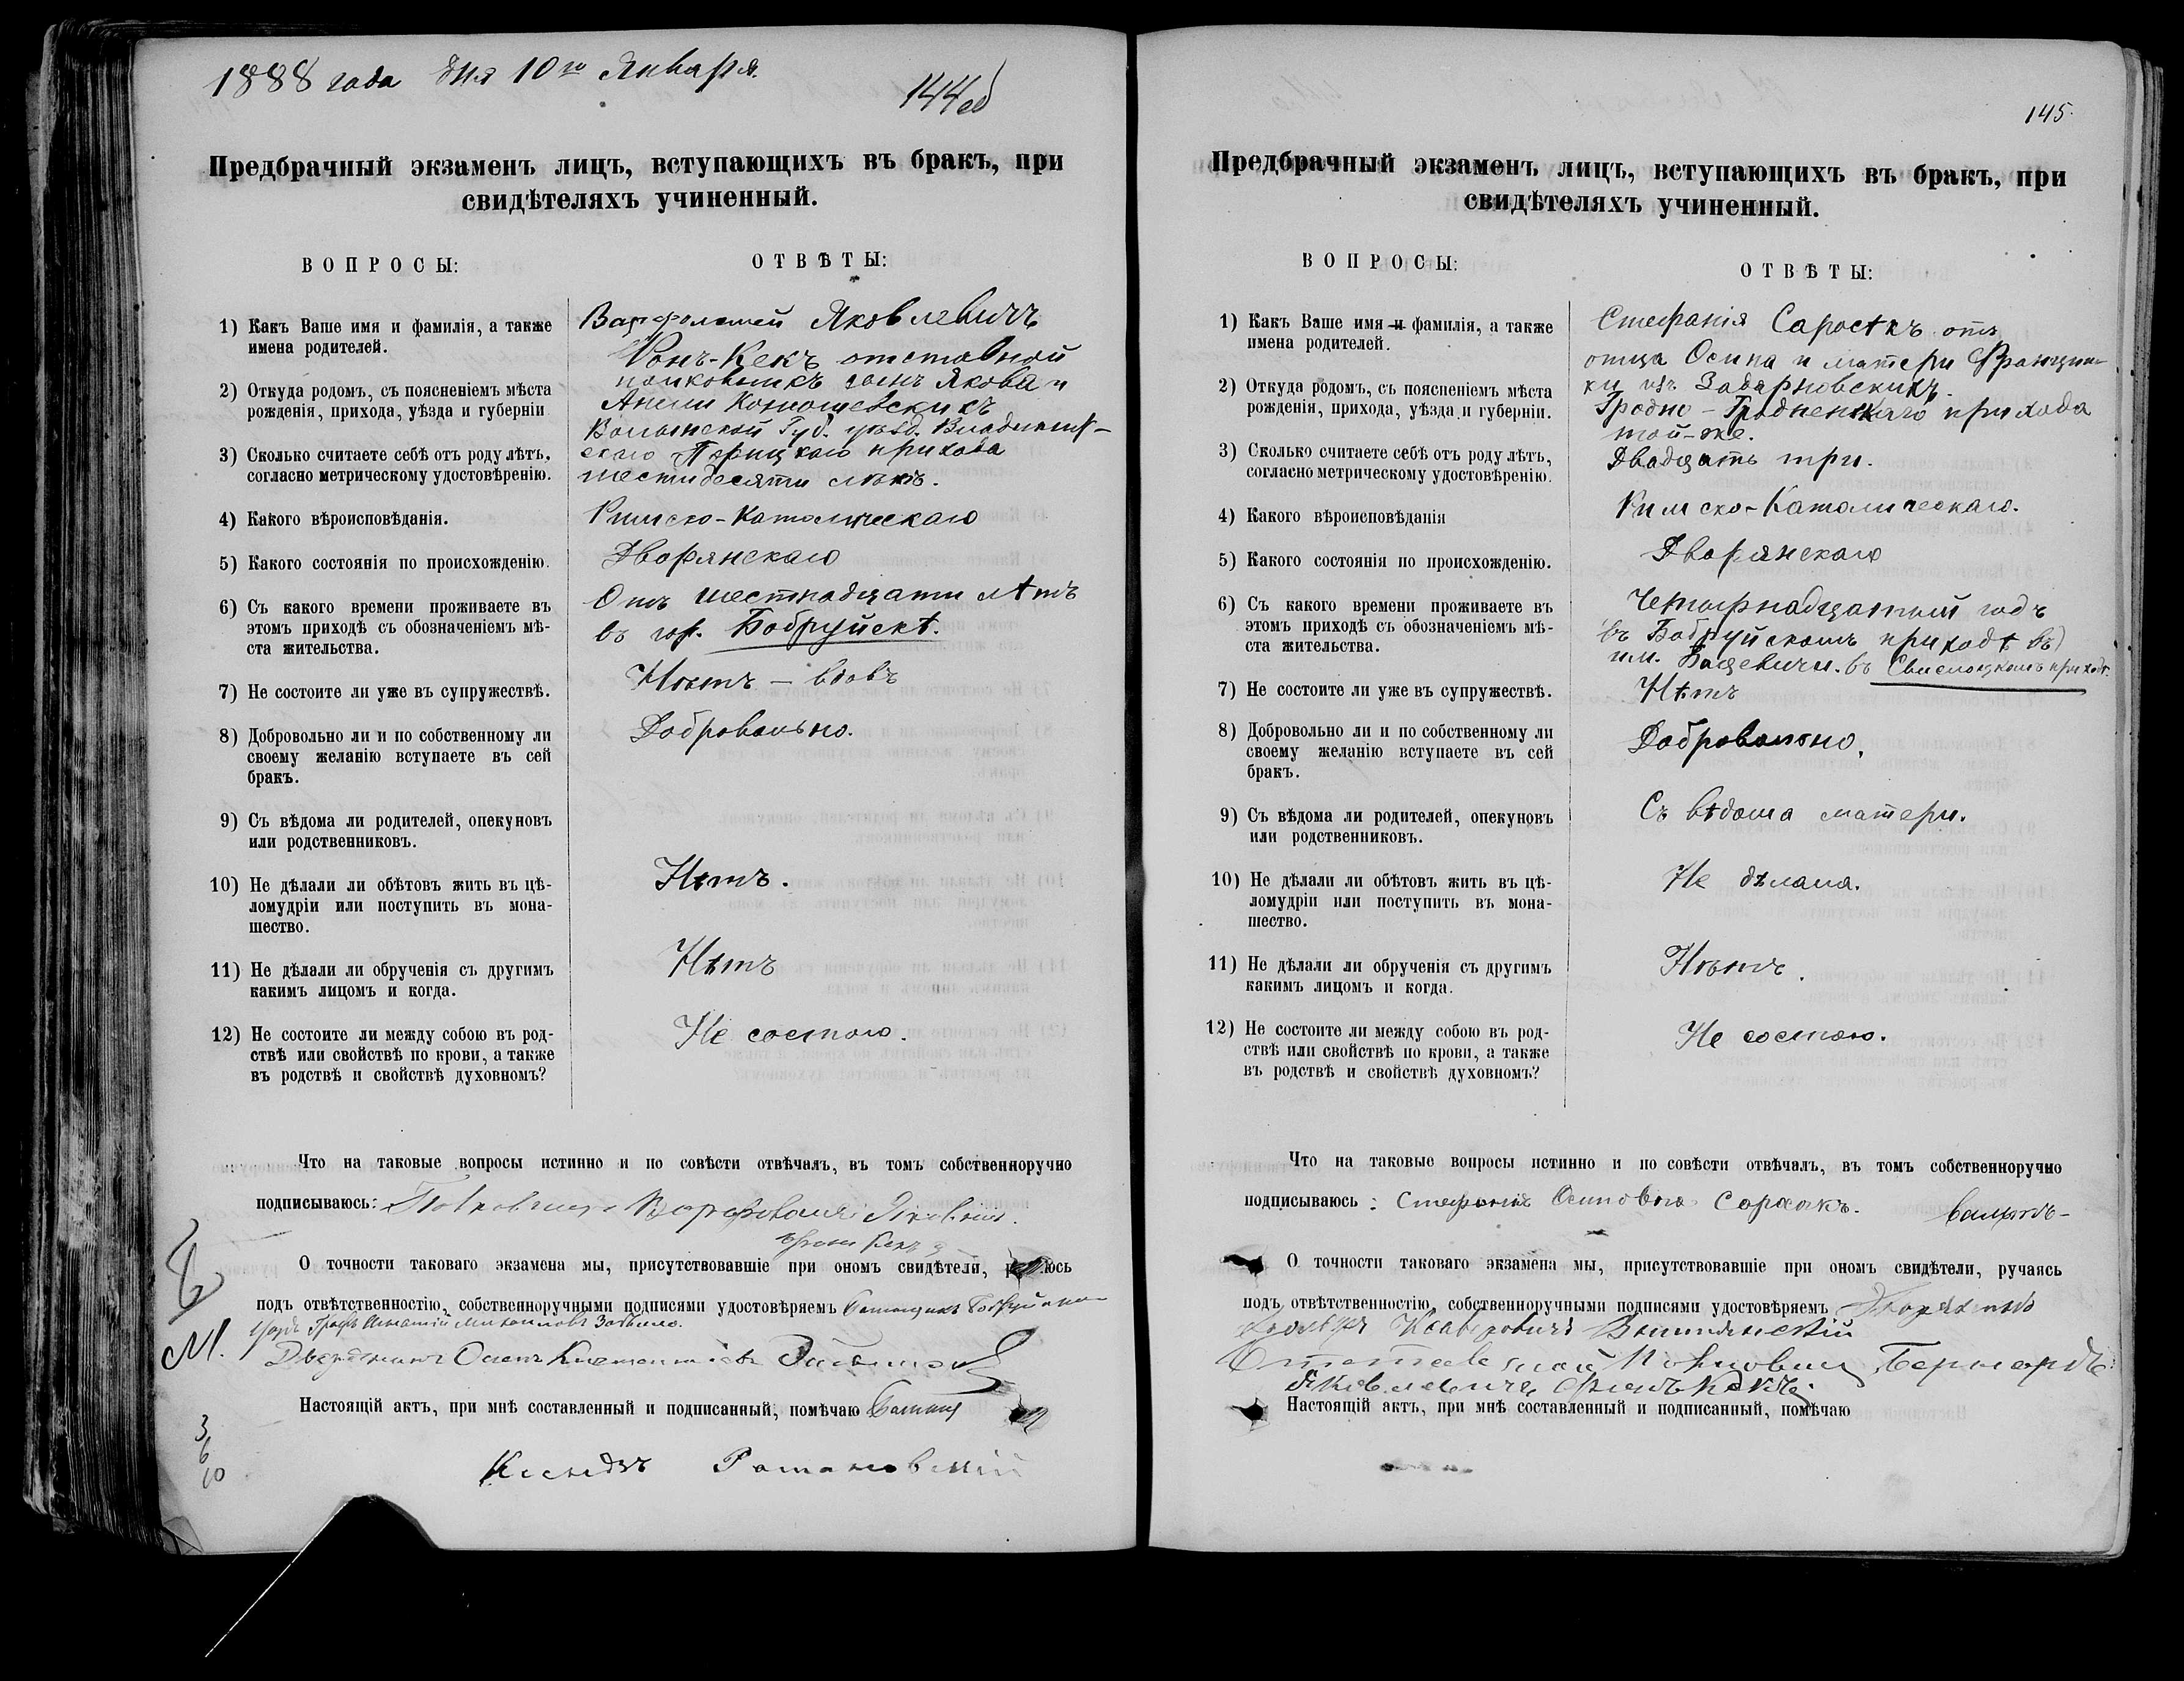 1888 года дня 10го Января.
144об
Предбрачный экзаменъ лицъ, вступающихъ въ бракъ, при
свидѣтеляхъ учиненный.
ВОПРОСЫ:
ОТВѢТЫ:
1) Какъ Ваше имя и фамилія, а также
имена родителей.
2) Откуда родомъ, съ поясненіемъ мѣста
рожденія, прихода, уѣзда и губерніи
3) Сколько считаете себѣ отъ роду лѣтъ,
согласно метрическому удостовѣренію.
4) Какого вѣроисповѣданія.
5) Какого состоянія по происхожденію.
6) Съ какого времени проживаете въ
этомъ приходѣ съ обозначеніемъ мѣ-
ста жительства.
7) Не состоите ли уже въ супружествѣ.
8) Добровольно ли и по собственному ли
своему желанію вступаете въ сей
бракъ.
9) Съ вѣдома ли родителей, опекуновъ
или родственниковъ.
10) Не дѣлали ли обѣтовъ жить въ цѣ-
ломудріи или поступить въ мона-
шество.
11) Не дѣлали ли обрученія съ другимъ
какимъ лицомъ и когда.
12) Не состоите ли между собою въ род-
ствѣ или свойствѣ по крови, а также
въ родствѣ и свойствѣ духовномъ?
Варфоломей Яковлевичъ
Фонъ-Кекъ отставной
полковникъ сынъ Якова и
Анели
Волынской Губ. уѣзд. Владимір-
скаго прихода
шестидесяти лѣтъ.
Римско-Католическаго
Дворянскаго
Отъ шестнадцати лѣтъ
въ гор. Бобруйскѣ.
Нѣтъ - вдовъ
Добровольно.
Нѣтъ.
Нѣтъ
Не состою.
Что на таковые вопросы истинно и по совѣсти отвѣчалъ, въ томъ собственноручно
подписываюсь: Полковникъ Варфоломей Яковлевъ
фонъ Кекъ
О точности таковаго экзамена мы, присутствовавшіе при ономъ свидѣтели, юсь
подъ отвѣтственностію, собственноручными подписями удостовѣряемъ
Графъ Михайловъ
Дворянинъ Осипъ
Настоящій актъ, при мнѣ составленный и подписанный, помѣчаю
Ксендзъ Романовскій
М.
3
6
10
145.
Предбрачный экзаменъ лицъ, вступающихъ въ бракъ, при
свидѣтеляхъ учиненный.
ВОПРОСЫ:
ОТВѢТЫ:
1) Какъ Ваше имя и фамилія, а также
имена родителей.
2) Откуда родомъ, съ поясненіемъ мѣста
рожденія, прихода, уѣзда и губерніи.
3) Сколько считаете себѣ отъ роду лѣтъ,
согласно метрическому удостовѣренію.
4) Какого вѣроисповѣданія
5) Какого состоянія по происхожденію.
6) Съ какого времени проживаете въ
этомъ приходѣ съ обозначеніемъ мѣ-
ста жительства.
7) Не состоите ли уже въ супружествѣ.
8) Добровольно ли и по собственному ли
своему желанію вступаете въ сей
бракъ.
9) Съ вѣдома ли родителей, опекуновъ
или родственниковъ.
10) Не дѣлали ли обѣтовъ жить въ цѣ-
ломудріи или поступить въ мона-
шество.
11) Не дѣлали ли обрученія съ другимъ
какимъ лицомъ и когда.
12) Не состоите ли между собою въ род-
ствѣ или свойствѣ по крови, а также
въ родствѣ и свойствѣ духовномъ?
Стефанія отъ
отца Осипа и матери Франциш-
ки изъ Задарновскихъ.
Гродно-Гродненскаго прихода
той-же.
Двадцать три.
Римско-Католическаго.
Дворянскаго
Четырнадцатый годъ
въ Бобруйскомъ приходѣ въ
им. Бацевичи. въ Свислоцкомъ приходѣ.
Нѣтъ
Добровольно,
Съ вѣдома матери.
Не дѣлала.
Нѣтъ.
Не состою.
Что на таковые вопросы истинно и по совѣсти отвѣчалъ, въ томъ собственноручно
подписываюсь: Стефанія Осиповна
О точности таковаго экзамена мы, присутствовавшіе при ономъ свидѣтели, ручаясь
подъ отвѣтственностію собственноручными подписями удостовѣряемъ Дворянинъ
Ксаверовичъ
Отставной Бернардъ
Яковлевичъ Фонъ Кекъ
Настоящій актъ, при мнѣ составленный и подписанный, помѣчаю